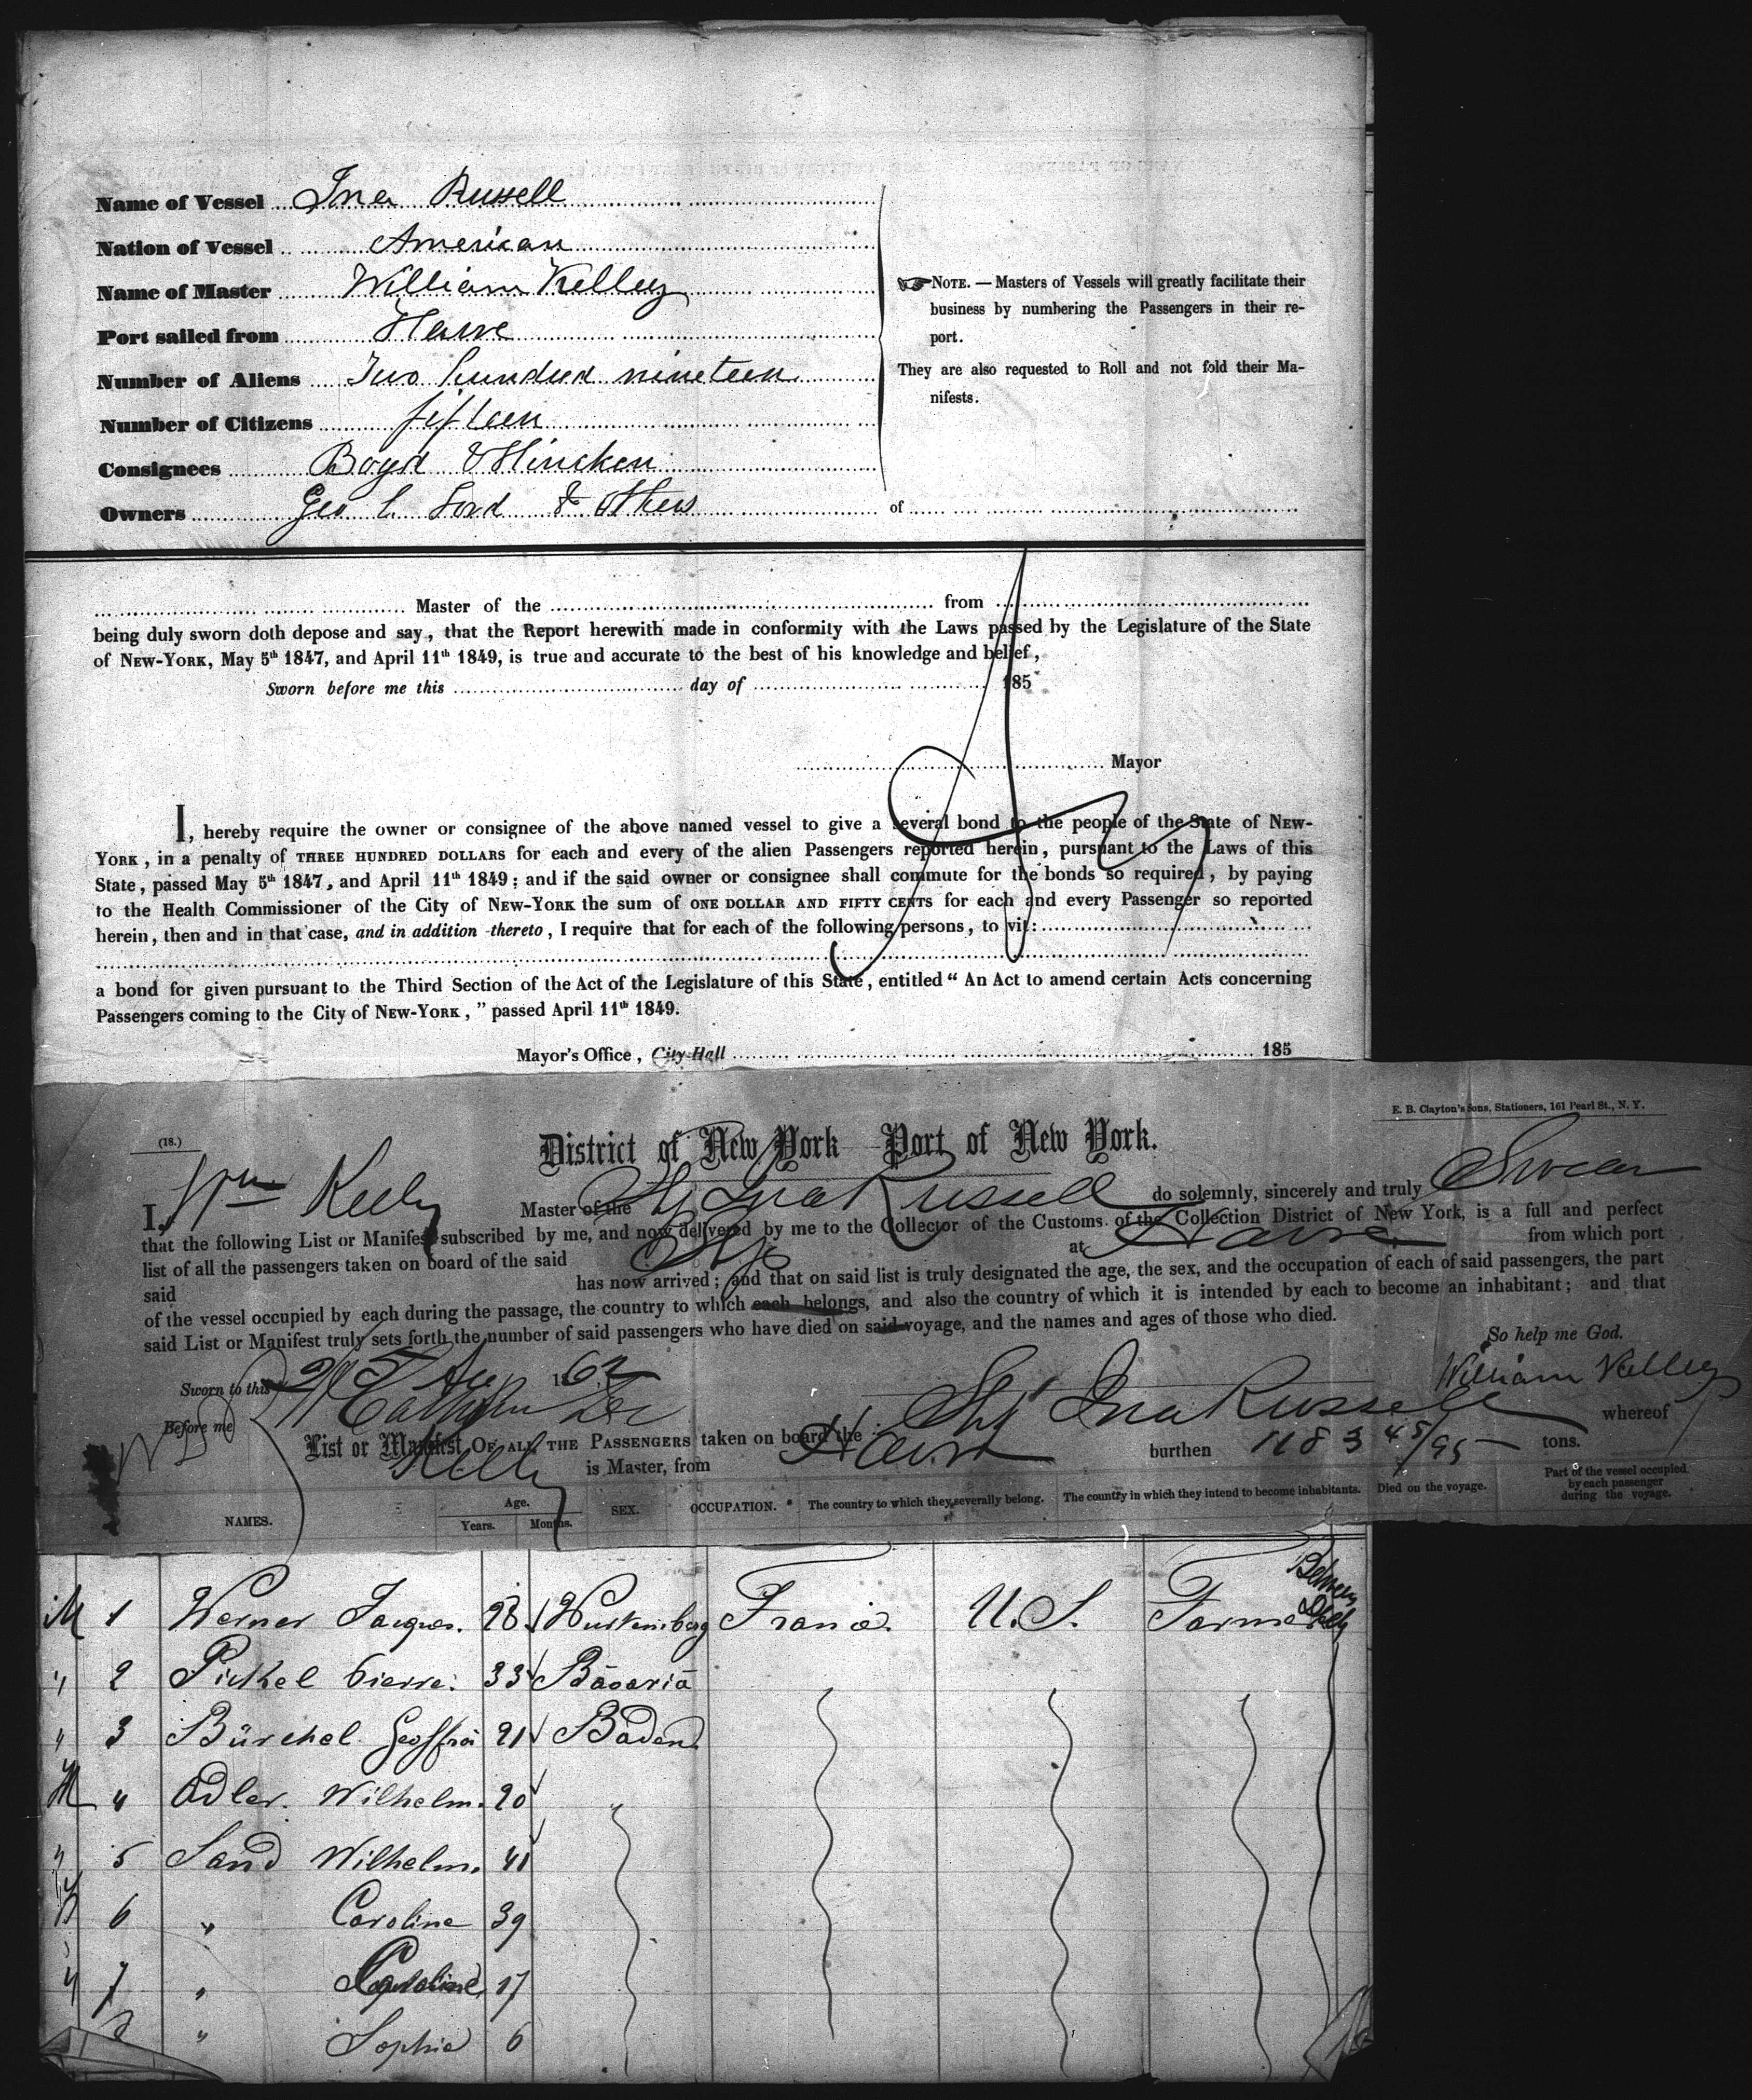 Name of Vessel Ina Russell
Nation of Vessel American
Name of Master William Kelley
Port sailed from Havre
Number of Aliens Two hundred nineteen
Number of Citizens fifteen
Consignees Boyd & Hincken
Owners Geo L. Lord & Others
NOTE. — Masters of Vessels will greatly facilitate their
business by numbering the Passengers in their re-
port.
They are also requested to Roll and not fold their Ma-
nifests.
of
Master of the from
being duly sworn doth depose and say, that the Report herewith made in conformity with the Laws passed by the Legislature of the State
of NEW-YORK, May 5th 1847, and April 11th 1849, is true and accurate to the best of his knowledge and belief,
Sworn before me this day of 185
Mayor
I, hereby require the owner or consignee of the above named vessel to give a several bond to the people of the State of NEW-
YORK, in a penalty of THREE HUNDRED DOLLARS for each and every of the alien Passengers reported herein, pursuant to the Laws of this
State, passed May 5th 1847, and April 11th 1849; and if the said owner or consignee shall commute for the bonds so required, by paying
to the Health Commissioner of the City of NEW-YORK the sum of ONE DOLLAR AND FIFTY CENTS for each and every Passenger so reported
herein, then and in that case, and in addition thereto, I require that for each of the following persons, to vit:
a bond for given pursuant to the Third Section of the Act of the Legislature of this State, entitled “ An Act to amend certain Acts concerning
Passengers coming to the City of NEW-YORK, ” passed April 11th 1849.
Mayor's Office, City Hall 185
E. B. Clayton's Sons, Stationers, 161 Pearl St., N. Y.
(18.)
District of New York Port of New York.
I, Wm Kelly Master of the Shp Ina Russell do solemnly, sincerely and truly Swear
that the following List or Manifest subscribed by me, and now delivered by me to the Collector of the Customs of the Collection District of New York, is a full and perfect
list of all the passengers taken on board of the said Shp at Havre from which port
said has now arrived; and that on said list is truly designated the age, the sex, and the occupation of each of said passengers, the part
of the vessel occupied by each during the passage, the country to which each belongs, and also the country of which it is intended by each to become an inhabitant; and that
said List or Manifest truly sets forth the number of said passengers who have died on said voyage, and the names and ages of those who died.
So help me God.
Sworn to this 25 Au 1862
William Kelley
Before me
List or Manifest OF ALL THE PASSENGERS taken on board the Shp Ina Russell whereof
Kelly is Master, from Havre burthen 1183 45/95 tons.
NAMES. Age. Years. Months. SEX. OCCUPATION. The country to which they severally belong. The country in which they intend to become inhabitants. Died on the voyage. Part of the vessel occupied by each passenger during the voyage.
M 1 Werner Jacques. 28 Wurtemberg France. U.S. Farmer Between
" 2 Pickel Pierre. 33 Bavaria
" 3 Bürchel Geoffroi 21 Baden
M 4 Adler. Wilhelm. 20 "
" 5 Sand Wilhelm. 41
6 " Caroline 39
" 7 " 17
" Sophie 6